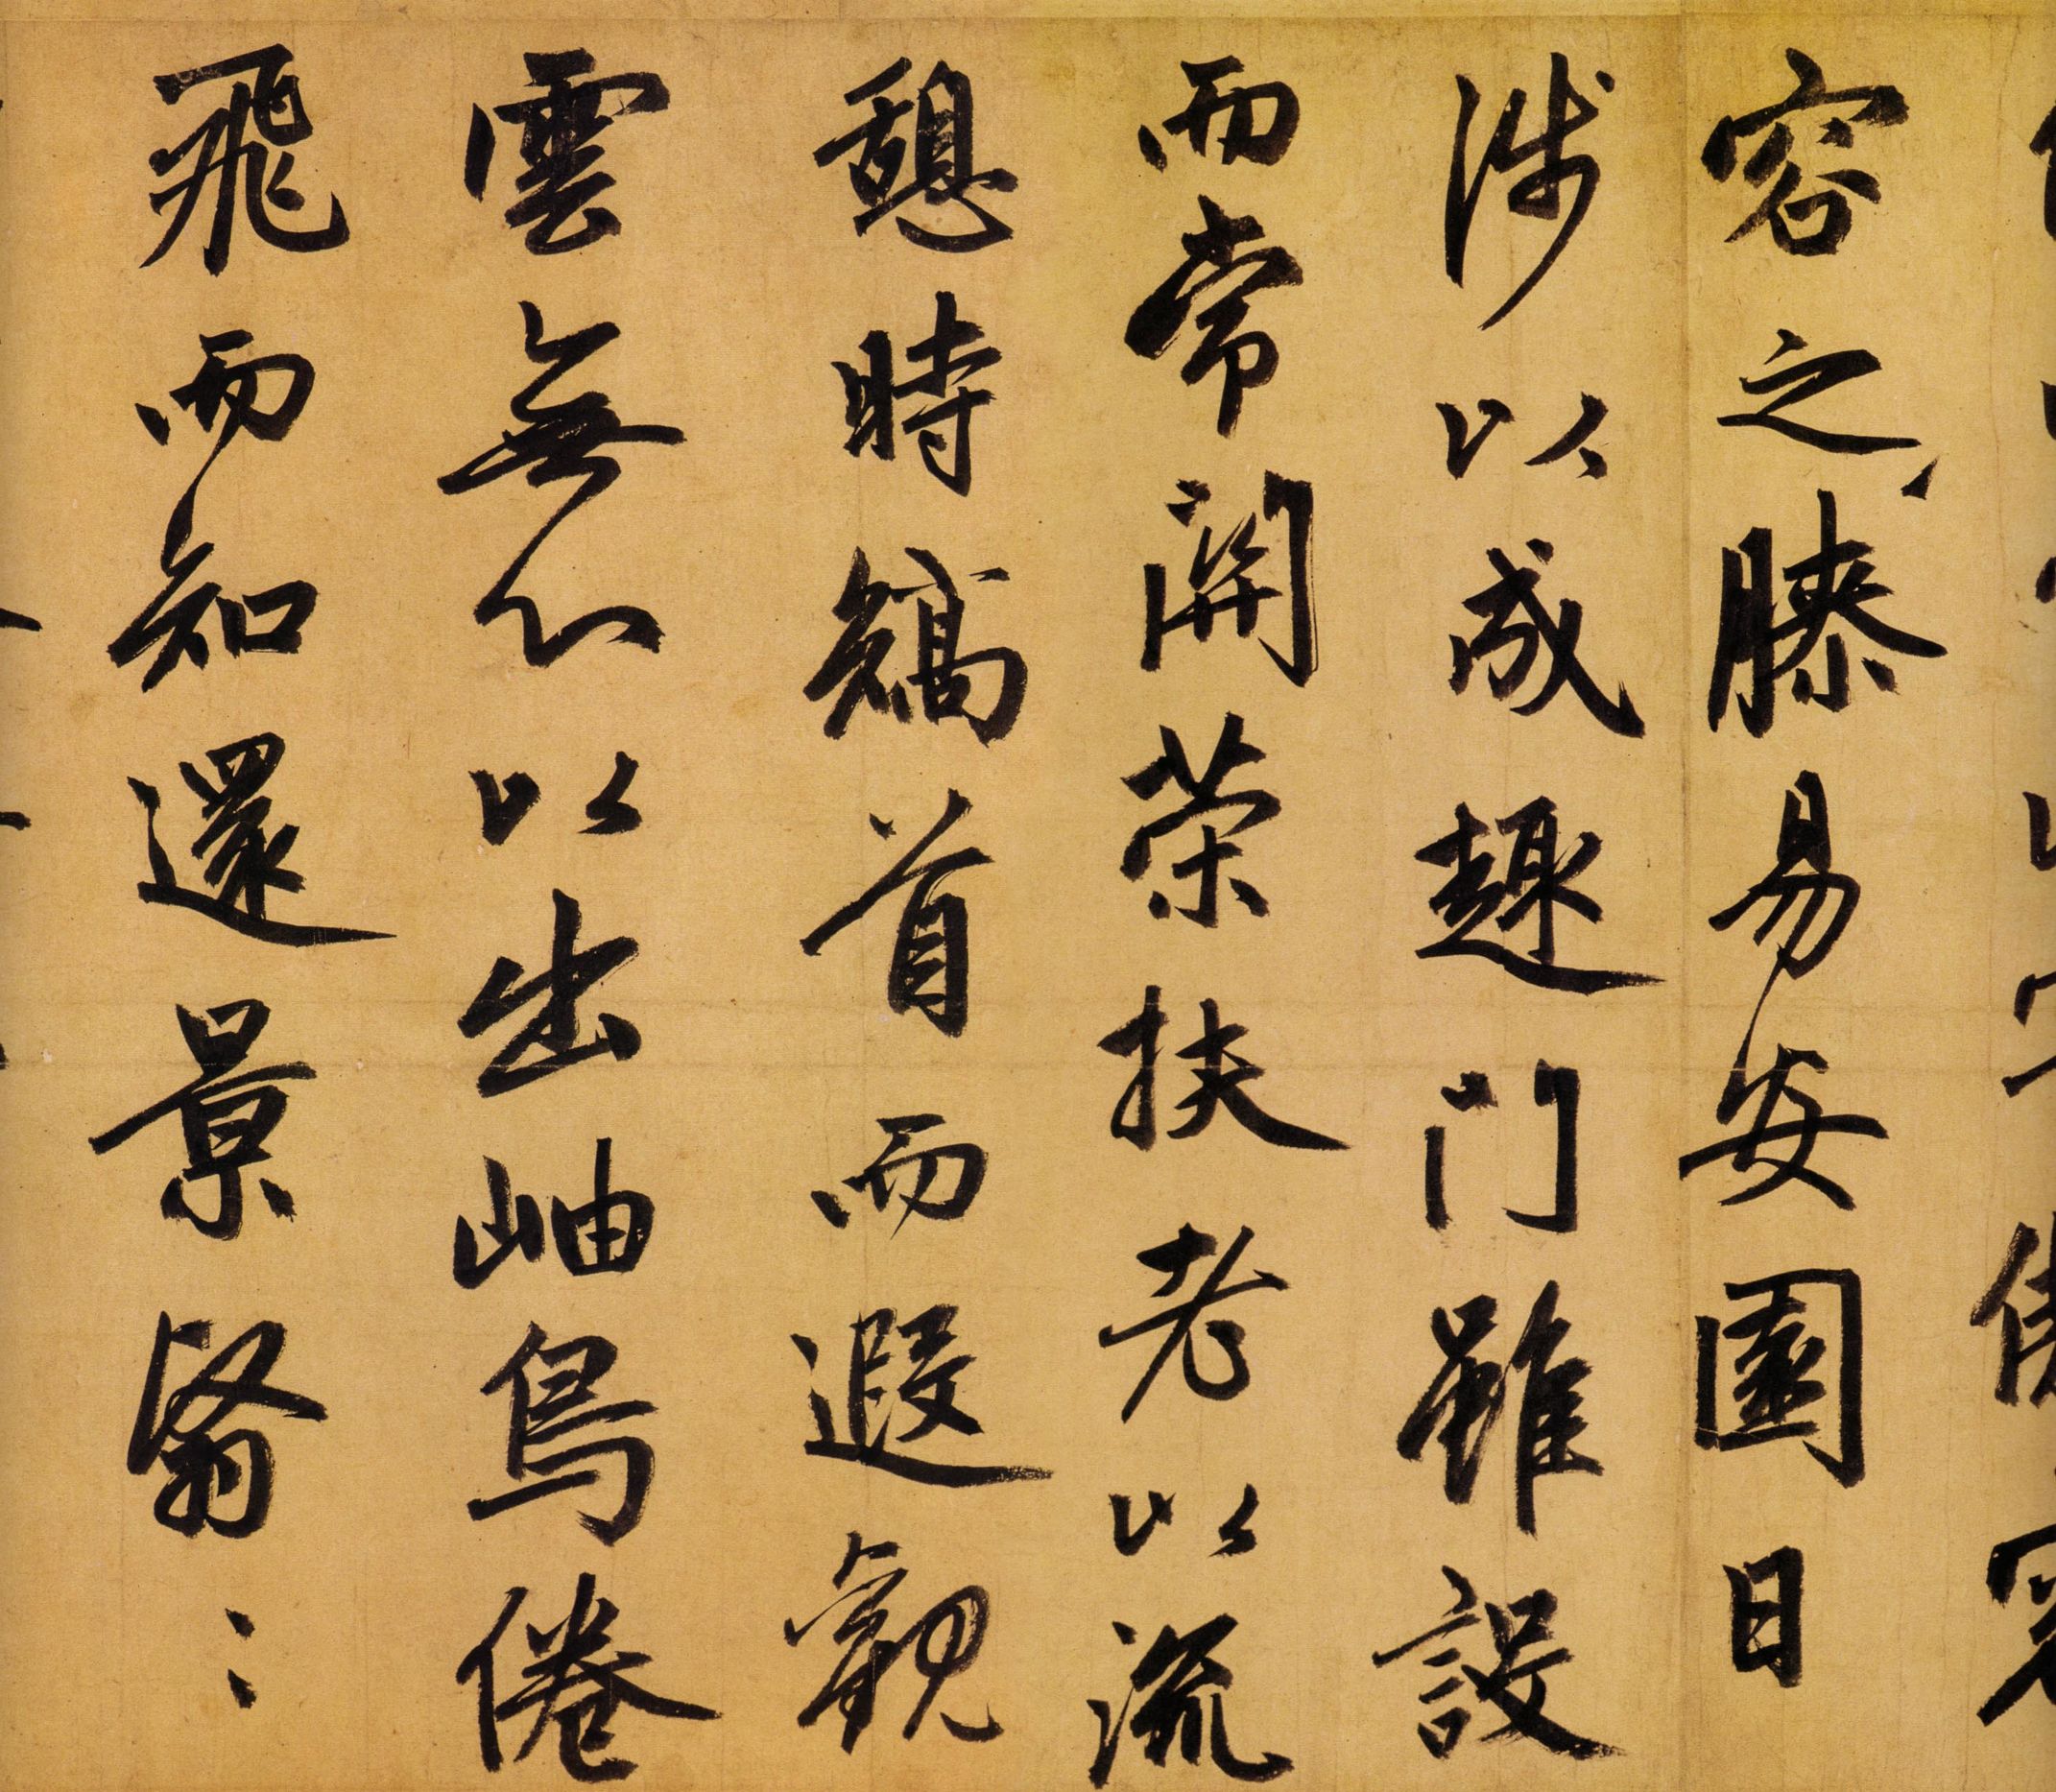 容之膝易安園日
涉以成趣門雖設
而常關策扶老以流
憩時矯首而遐觀
雲無心以出岫鳥倦
飛而知還景翳〻